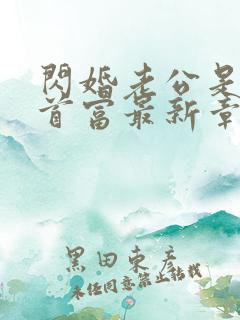 閃婚老公是
首富最新章
黑田東彥
未經同意禁止轉載